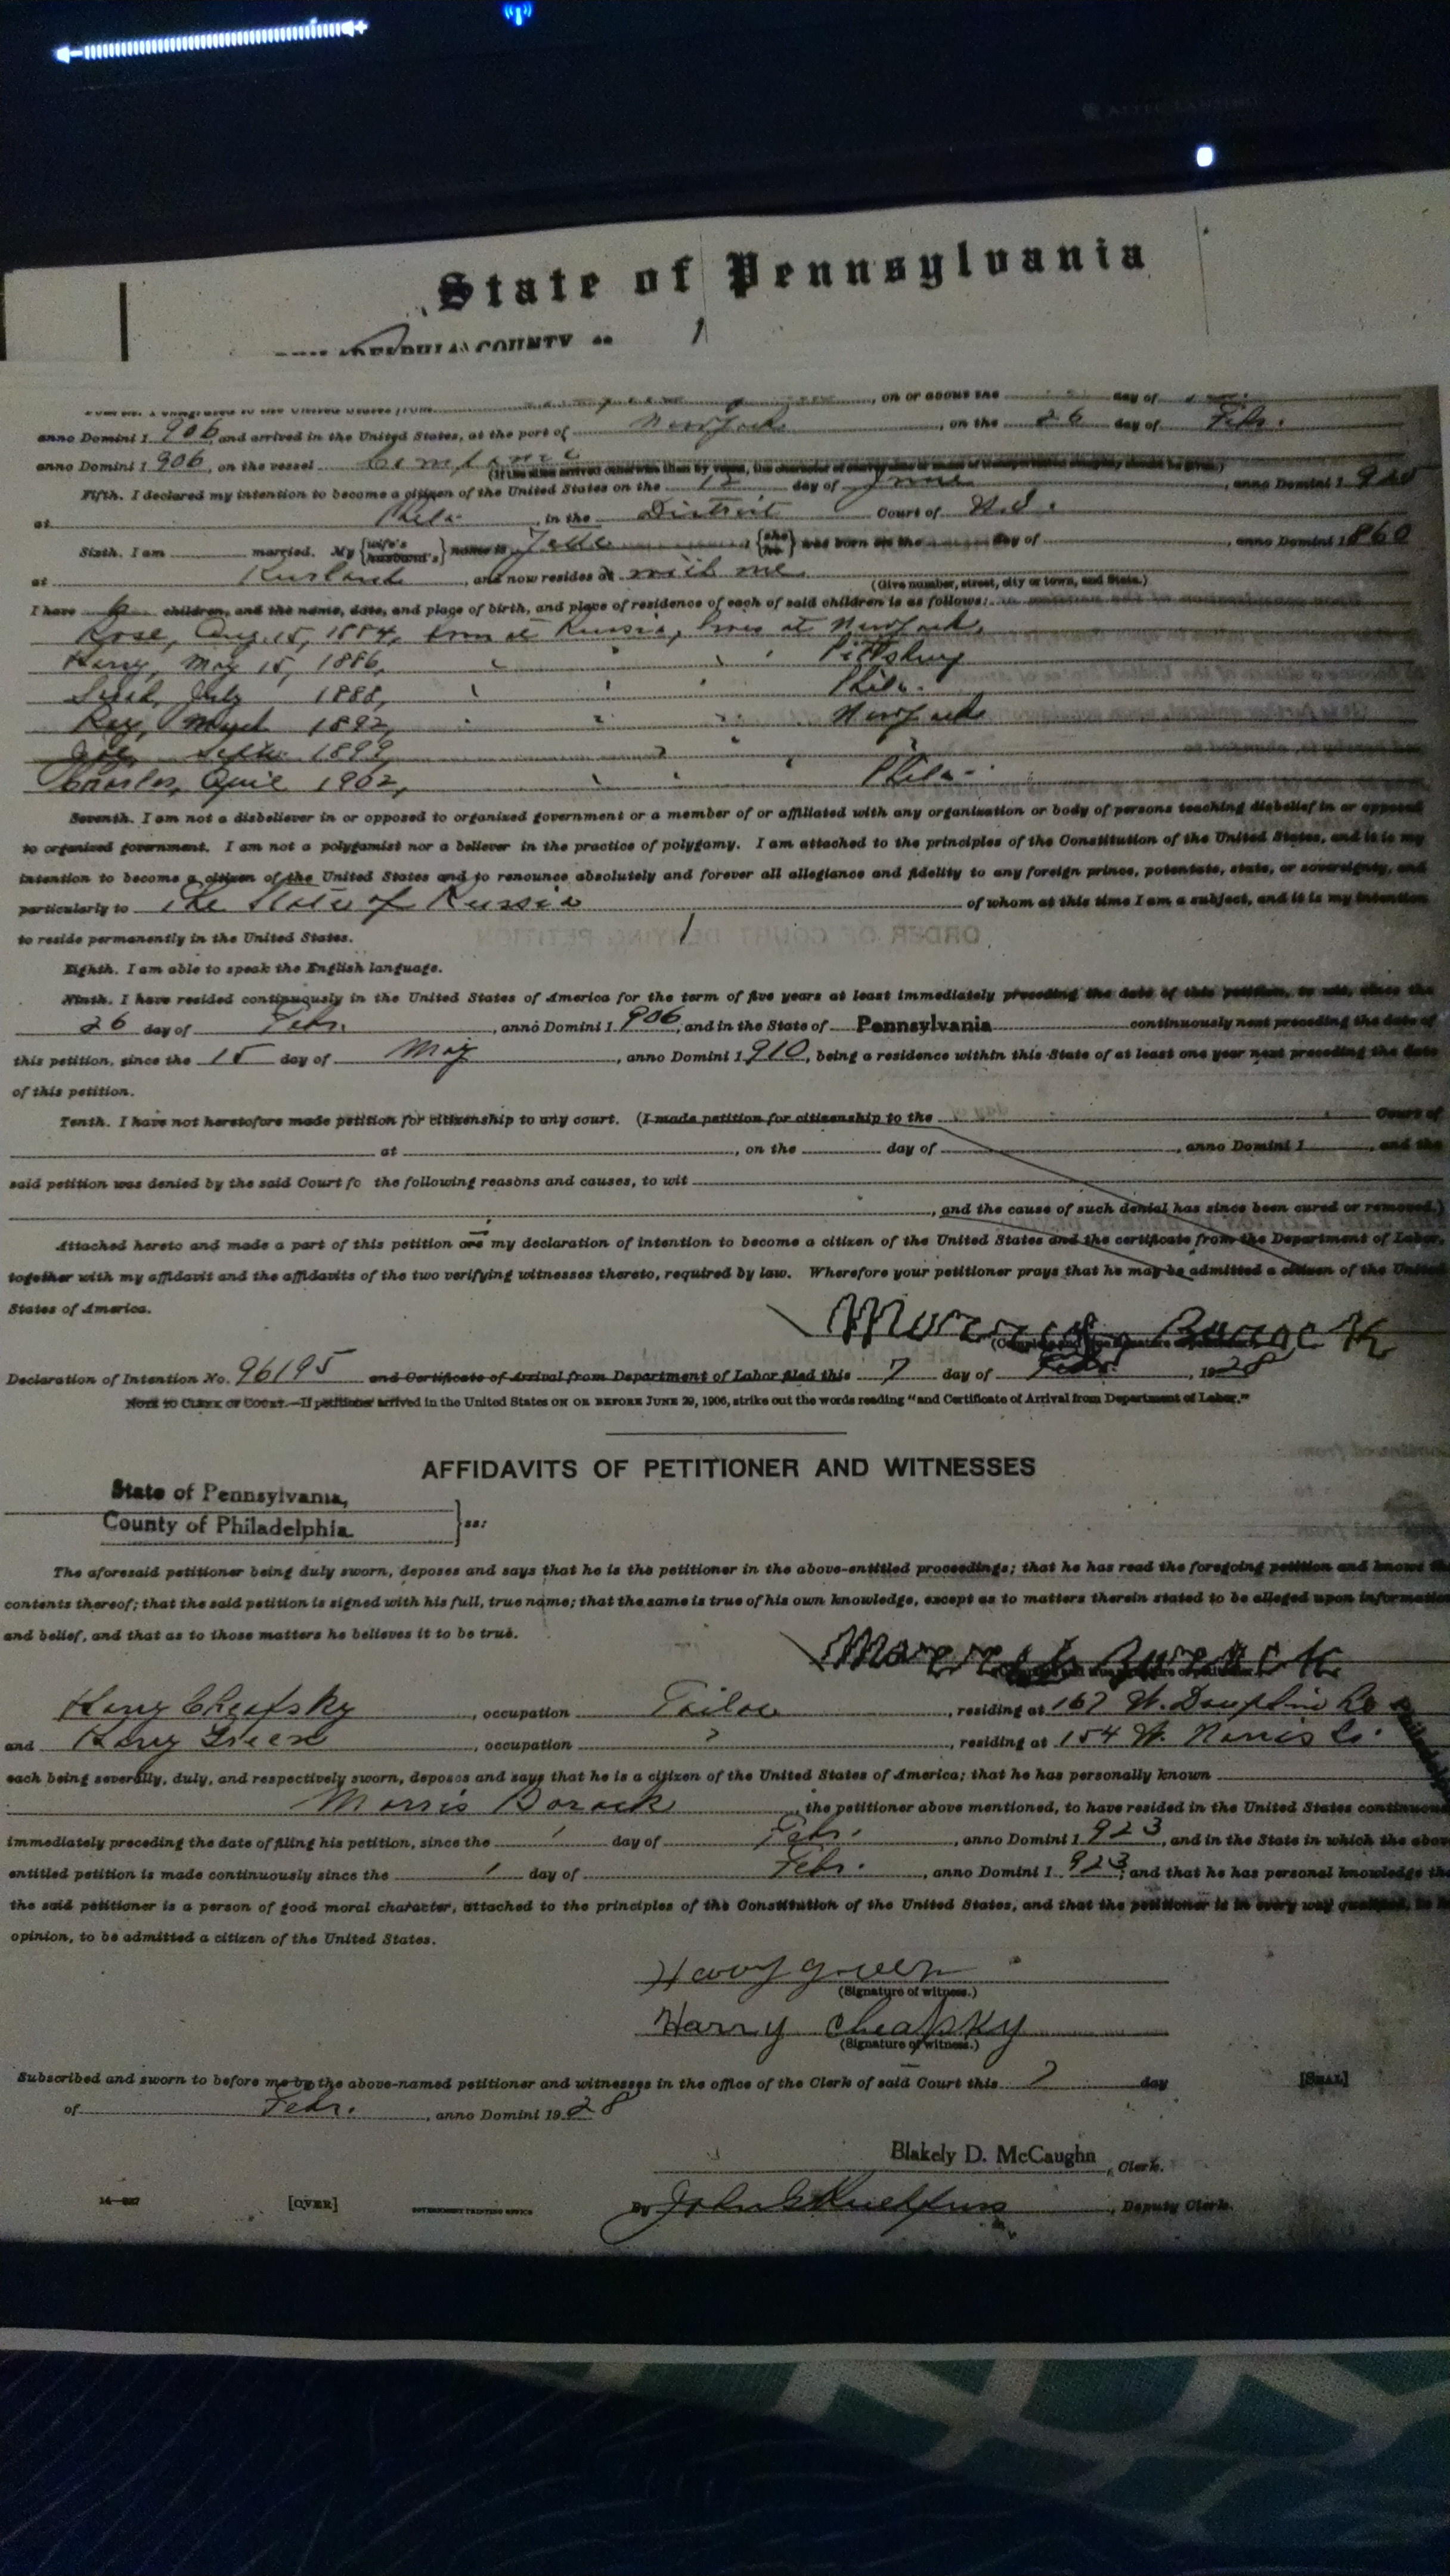 ALTEC LANSING
State of Pennsylvania
PHILADELPHIA COUNTY, ss
, on or about the day of
anno Domini 1 906, and arrived in the United States, at the port of New York, on the 26 day of Febr.
anno Domini 1 906, on the vessel
(If the alien arrived otherwise than by vessel, the character of conveyance or name of transportation company should be given.)
Fifth. I declared my intention to become a citizen of the United States on the 12 day of June, anno Domini 1 920
at Phila. in the District Court of U.S.
Sixth. I am married. My {wife's husband's} name is {she he} was born on the day of , anno Domini 1 860
at Kurland, and now resides at with me.
(Give number, street, city or town, and State.)
I have 6 children, and the name, date, and place of birth, and place of residence of each of said children is as follows:
Rose, Aug. 15, 1884, born at Russia, lives at New York,
Harry, May 15, 1886, " " " " Pittsburg
July 1888, " " " Phila.
Ray, March 1892, " " " New York
Sept. 1899, " " "
Charles, April 1902, " " " Phila.
Seventh. I am not a disbeliever in or opposed to organized government or a member of or affiliated with any organization or body of persons teaching disbelief in or opposed
to organized government. I am not a polygamist nor a believer in the practice of polygamy. I am attached to the principles of the Constitution of the United States, and it is my
intention to become a citizen of the United States and to renounce absolutely and forever all allegiance and fidelity to any foreign prince, potentate, state, or sovereignty, and
particularly to The State of Russia of whom at this time I am a subject, and it is my intention
to reside permanently in the United States.
ORDER OF COURT DENYING PETITION
Eighth. I am able to speak the English language.
Ninth. I have resided continuously in the United States of America for the term of five years at least immediately preceding the date of this petition, to wit, since the
26 day of Febr., anno Domini 1 906, and in the State of Pennsylvania continuously next preceding the date of
this petition, since the 15 day of May, anno Domini 1 910, being a residence within this State of at least one year next preceding the date
of this petition.
Tenth. I have not heretofore made petition for citizenship to any court. (I made petition for citizenship to the Court of
at , on the day of , anno Domini 1 , and the
said petition was denied by the said Court fo the following reasons and causes, to wit
, and the cause of such denial has since been cured or removed.)
Attached hereto and made a part of this petition are is my declaration of intention to become a citizen of the United States and the certificate from the Department of Labor,
together with my affidavit and the affidavits of the two verifying witnesses thereto, required by law. Wherefore your petitioner prays that he may be admitted a citizen of the United
States of America.
Morris Borock
(Complete and true signature of petitioner.)
Declaration of Intention No. 96195 and Certificate of Arrival from Department of Labor filed this 7 day of Febr., 1928
NOTE TO CLERK OF COURT.—If petitioner arrived in the United States ON OR BEFORE JUNE 29, 1906, strike out the words reading "and Certificate of Arrival from Department of Labor."
AFFIDAVITS OF PETITIONER AND WITNESSES
State of Pennsylvania,
County of Philadelphia. } ss:
The aforesaid petitioner being duly sworn, deposes and says that he is the petitioner in the above-entitled proceedings; that he has read the foregoing petition and knows the
contents thereof; that the said petition is signed with his full, true name; that the same is true of his own knowledge, except as to matters therein stated to be alleged upon information
and belief, and that as to those matters he believes it to be true.
Morris Borock
(Complete and true signature of petitioner.)
Harry Cheafsky, occupation Tailor, residing at 167 W. Dauphin
and Harry Green, occupation ", residing at 154 W. Norris St.
each being severally, duly, and respectively sworn, deposes and says that he is a citizen of the United States of America; that he has personally known
Morris Borock, the petitioner above mentioned, to have resided in the United States continuously
immediately preceding the date of filing his petition, since the 1 day of Febr., anno Domini 1 923, and in the State in which the above
entitled petition is made continuously since the 1 day of Febr., anno Domini 1 923, and that he has personal knowledge that
the said petitioner is a person of good moral character, attached to the principles of the Constitution of the United States, and that the petitioner is in every way qualified, in his
opinion, to be admitted a citizen of the United States.
Harry Green
(Signature of witness.)
Harry Cheafsky
(Signature of witness.)
Subscribed and sworn to before me by the above-named petitioner and witnesses in the office of the Clerk of said Court this 7 day [SEAL]
of Febr., anno Domini 1928
Blakely D. McCaughn, Clerk.
14—827 [OVER] GOVERNMENT PRINTING OFFICE By John, Deputy Clerk.